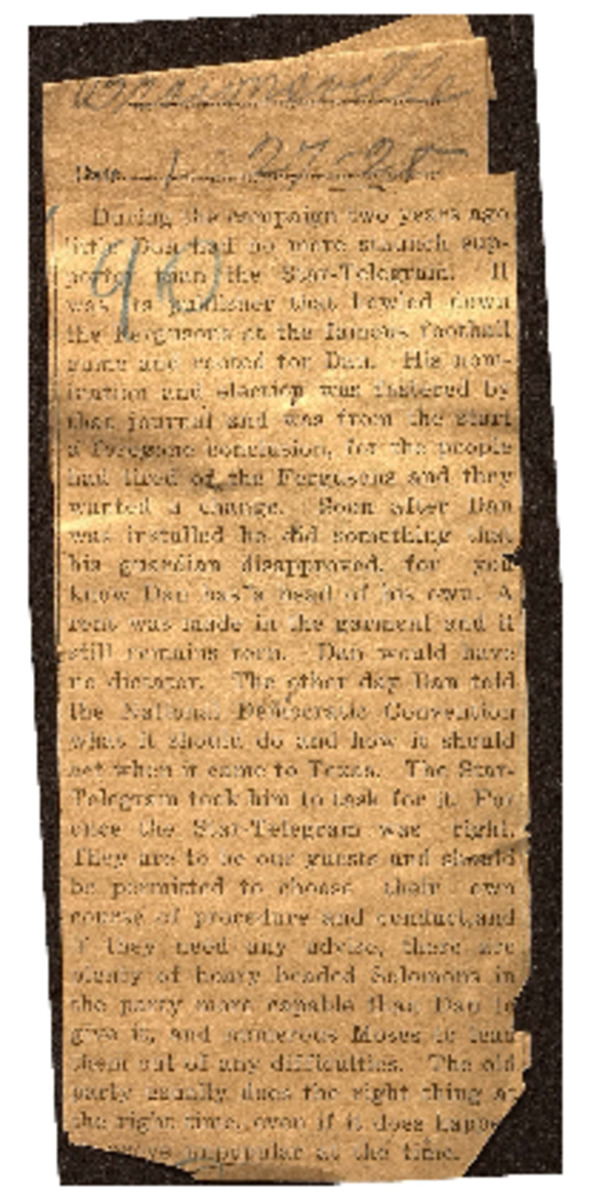 Date 1 27-28
90
During the campaign two years ago
little Dan had no more staunch sup-
porter than the Star-Telegram. It
was its publisher that bowled down
the Fergusons at the famous football
game and rooted for Dan. His nom-
ination and election was fostered by
that journal and was from the start
a foregone conclusion, for the people
had tired of the Fergusons and they
wanted a change. Soon after Dan
was installed he did something that
his guardian disapproved, for you
know Dan has a head of his own. A
rent was made in the garment and it
still remains rent. Dan would have
no dictator. The other day Dan told
the National Democratic Convention
what it should do and how it should
act when it came to Texas. The Star-
Telegram took him to task for it. For
once the Star-Telegram was right.
They are to be our guests and should
be permitted to choose their own
course of procedure and conduct, and
if they need any advise, there are
plenty of hoary headed Solomons in
the party more capable than Dan to
give it, and numerous Moses to lead
them out of any difficulties. The old
party usually does the right thing at
the right time, even if it does happen
unpopular at the time.